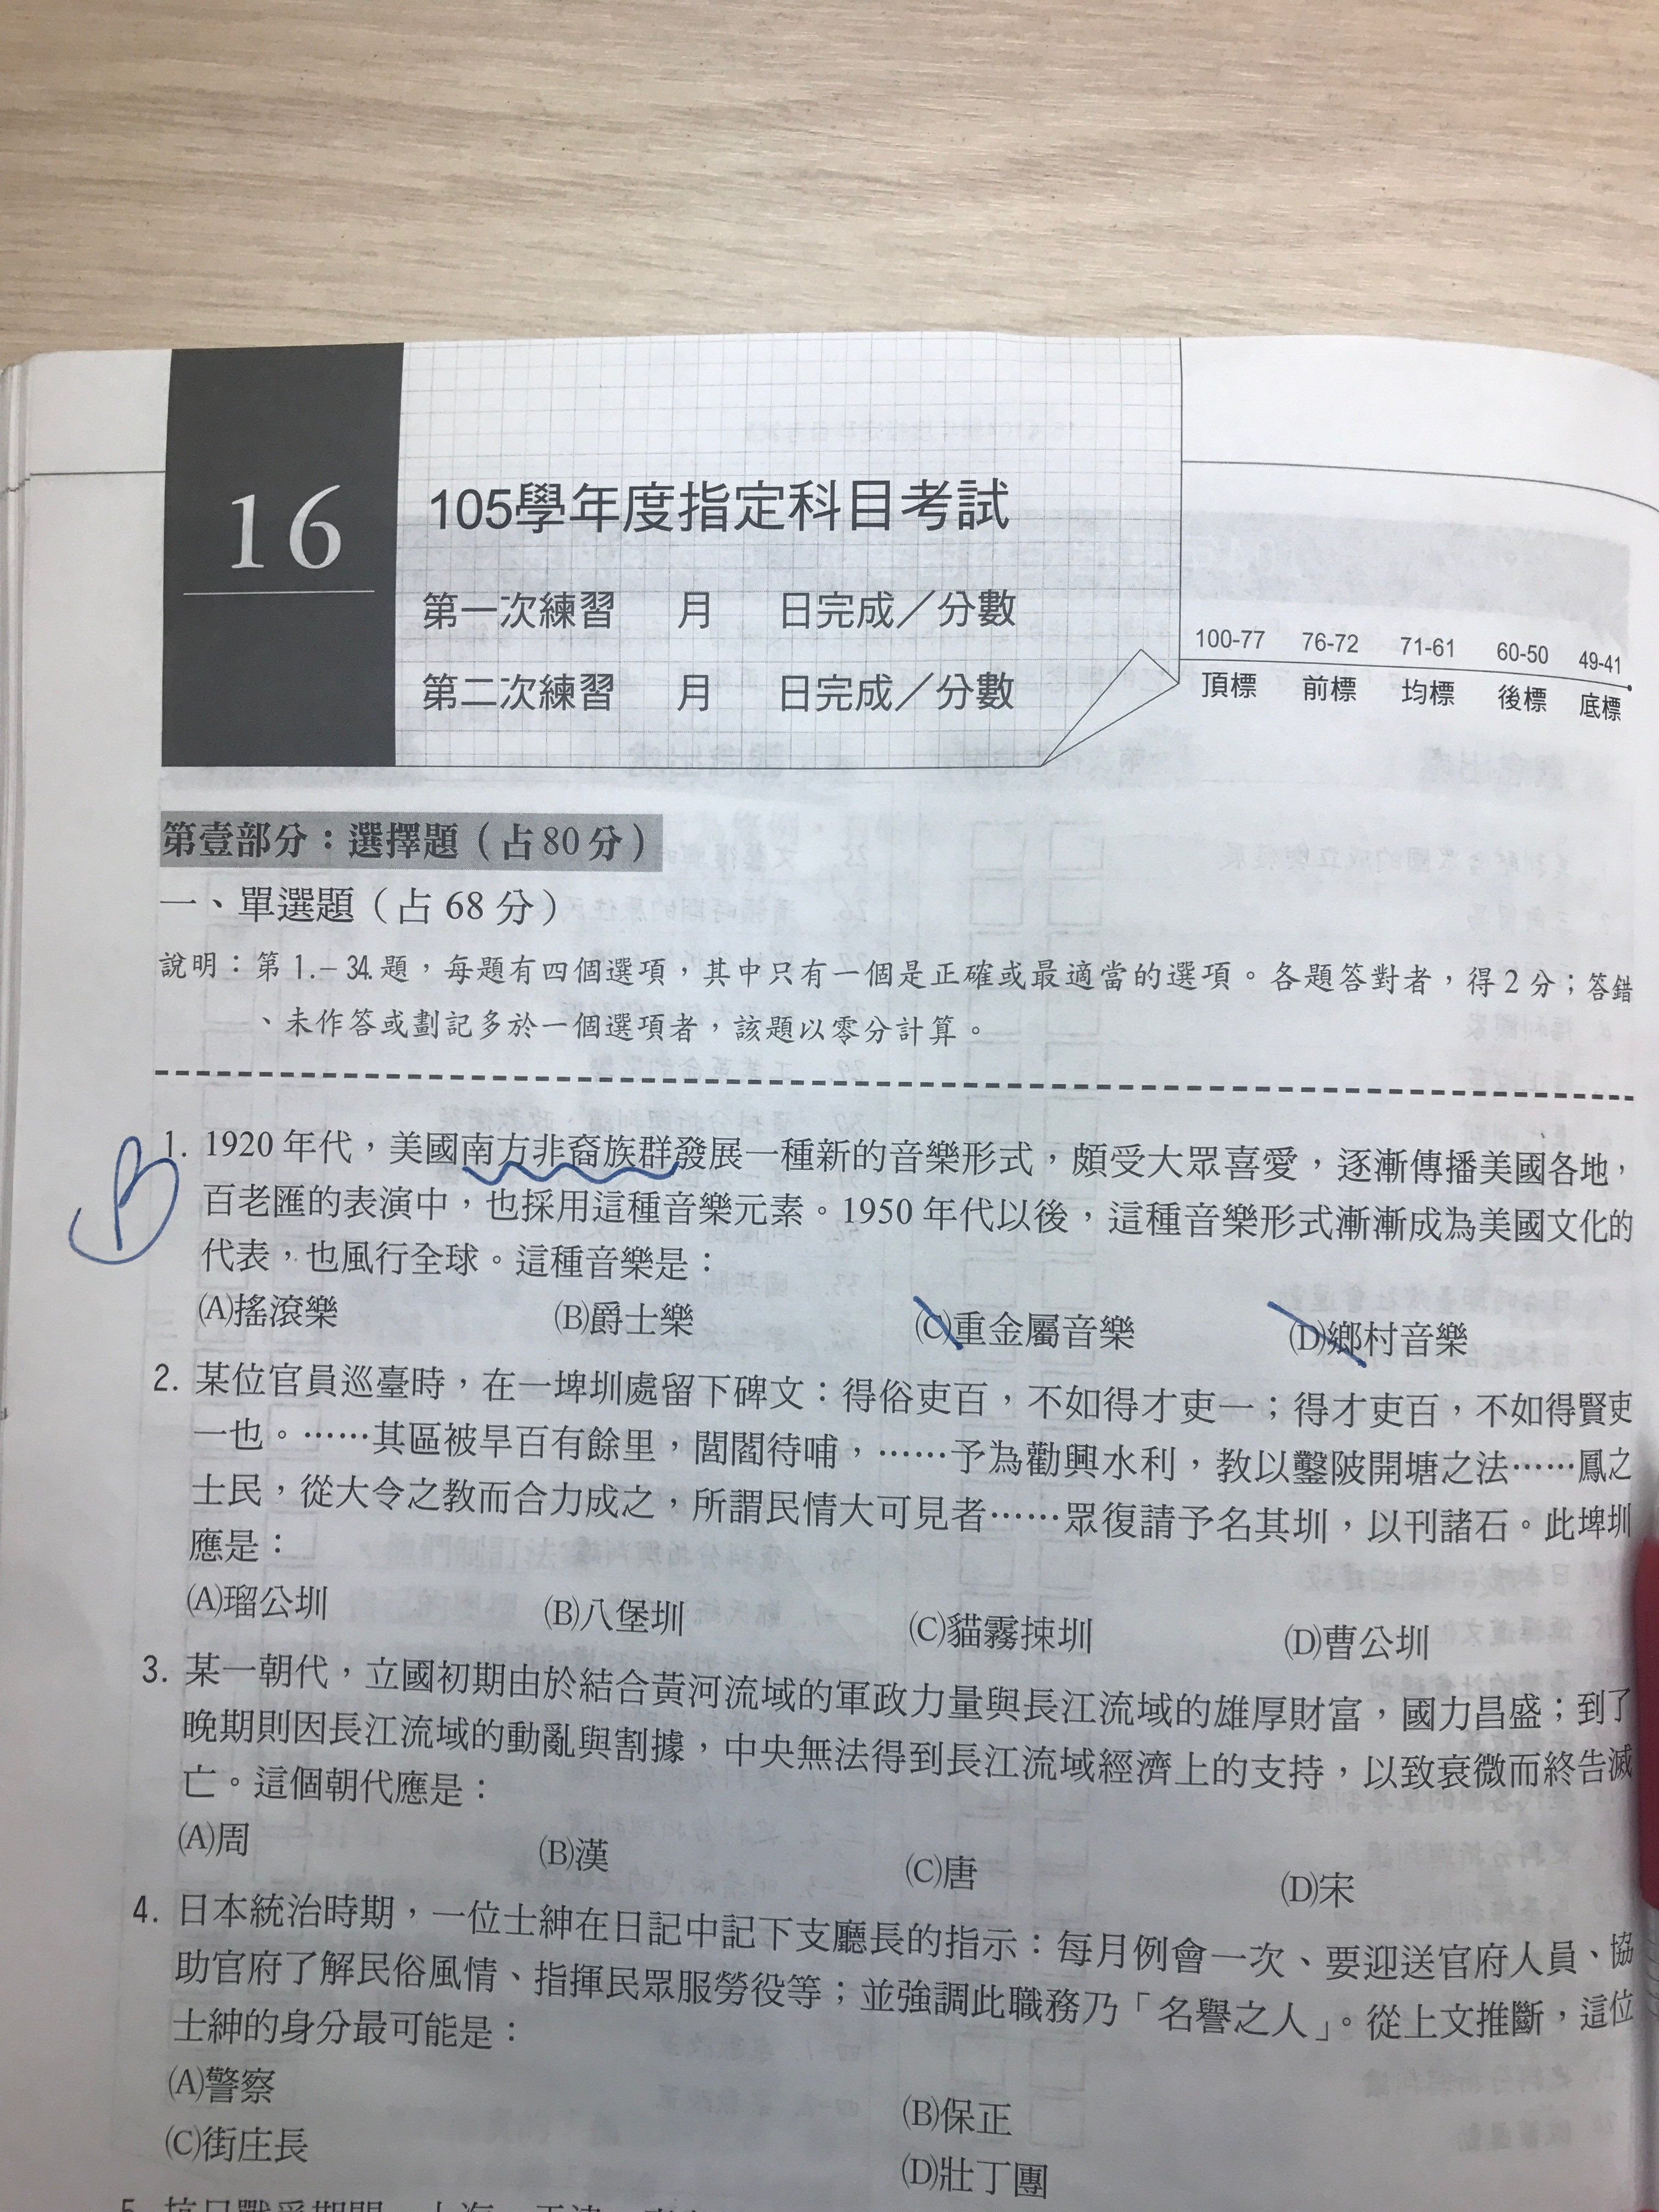 16
105學年度指定科目考試
第一次練習 月 日完成／分數
第二次練習 月 日完成／分數
100-77 76-72 71-61 60-50 49-41
頂標 前標 均標 後標 底標
第壹部分：選擇題（占80分）
一、單選題（占68分）
說明：第1.－34.題，每題有四個選項，其中只有一個是正確或最適當的選項。各題答對者，得2分；答錯
、未作答或劃記多於一個選項者，該題以零分計算。
B
1. 1920年代，美國南方非裔族群發展一種新的音樂形式，頗受大眾喜愛，逐漸傳播美國各地，
百老匯的表演中，也採用這種音樂元素。1950年代以後，這種音樂形式漸漸成為美國文化的
代表，也風行全球。這種音樂是：
(A)搖滾樂 (B)爵士樂 (C)重金屬音樂 (D)鄉村音樂
2. 某位官員巡臺時，在一埤圳處留下碑文：得俗吏百，不如得才吏一；得才吏百，不如得賢吏
一也。……其區被旱百有餘里，閭閻待哺，……予為勸興水利，教以鑿陂開塘之法……鳳之
士民，從大令之教而合力成之，所謂民情大可見者……眾復請予名其圳，以刊諸石。此埤圳
應是：
(A)瑠公圳 (B)八堡圳 (C)貓霧捒圳 (D)曹公圳
3. 某一朝代，立國初期由於結合黃河流域的軍政力量與長江流域的雄厚財富，國力昌盛；到了
晚期則因長江流域的動亂與割據，中央無法得到長江流域經濟上的支持，以致衰微而終告滅
亡。這個朝代應是：
(A)周 (B)漢 (C)唐 (D)宋
4. 日本統治時期，一位士紳在日記中記下支廳長的指示：每月例會一次、要迎送官府人員、協
助官府了解民俗風情、指揮民眾服勞役等；並強調此職務乃「名譽之人」。從上文推斷，這位
士紳的身分最可能是：
(A)警察 (B)保正
(C)街庄長 (D)壯丁團